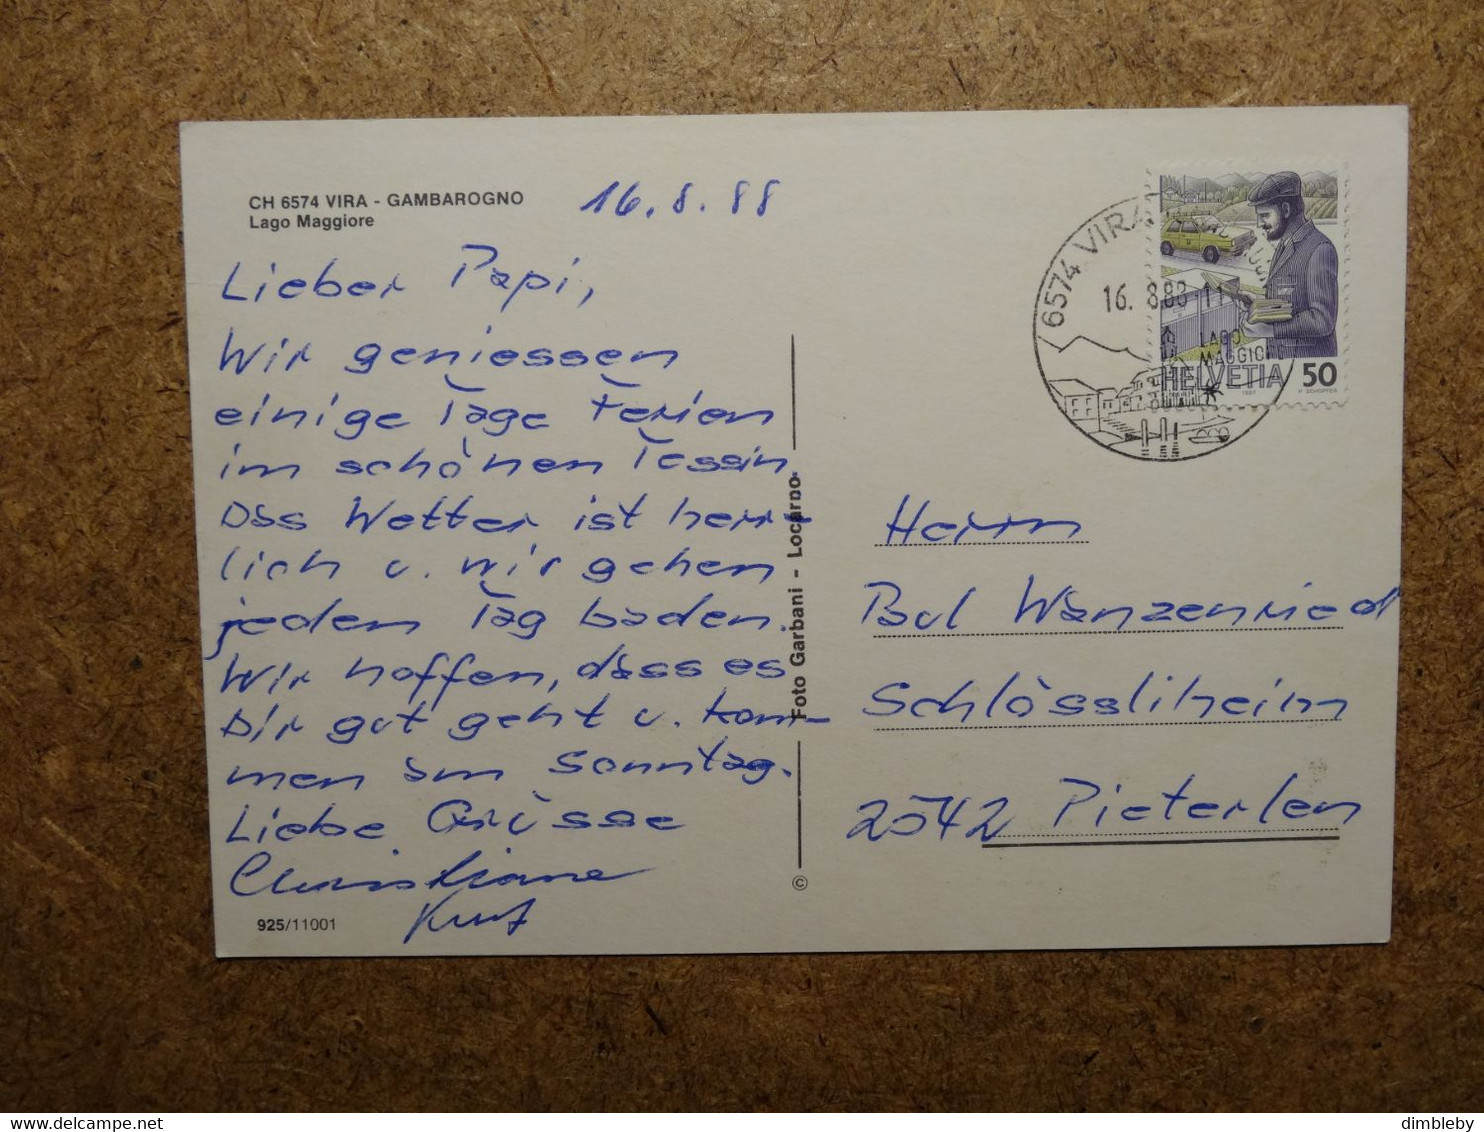 CH 6574 VIRA - GAMBAROGNO
Lago Maggiore
16.8.88
Lieber Papi,
Wir geniessen
einige Tage Ferien
im schönen Tessin
Das Wetter ist herr-
lich u. wir gehen
jeden Tag baden.
Wir hoffen, dass es
Dir gut geht u. kom-
men am Sonntag.
Liebe Grüsse
Christiane
Kurt
925/11001
Foto Garbani - Locarno
©
6574 VIRA
16. 8.88 11
LAGO
MAGGIORE
HELVETIA 50
1987
Herrn
Paul Wanzenried
Schlössliheim
2542 Pieterlen
dimbleby